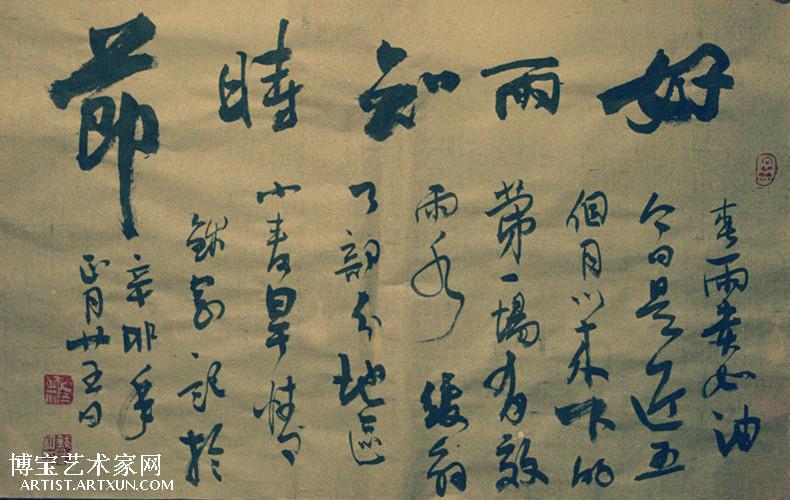 好雨知時節
春雨貴如油
今日是近五
個月以來下的
第一場有效
雨水 緩解
了部分地區
小春旱情
記於
辛卯年
正月廿五日
博宝艺术家网
ARTIST.ARTXUN.COM